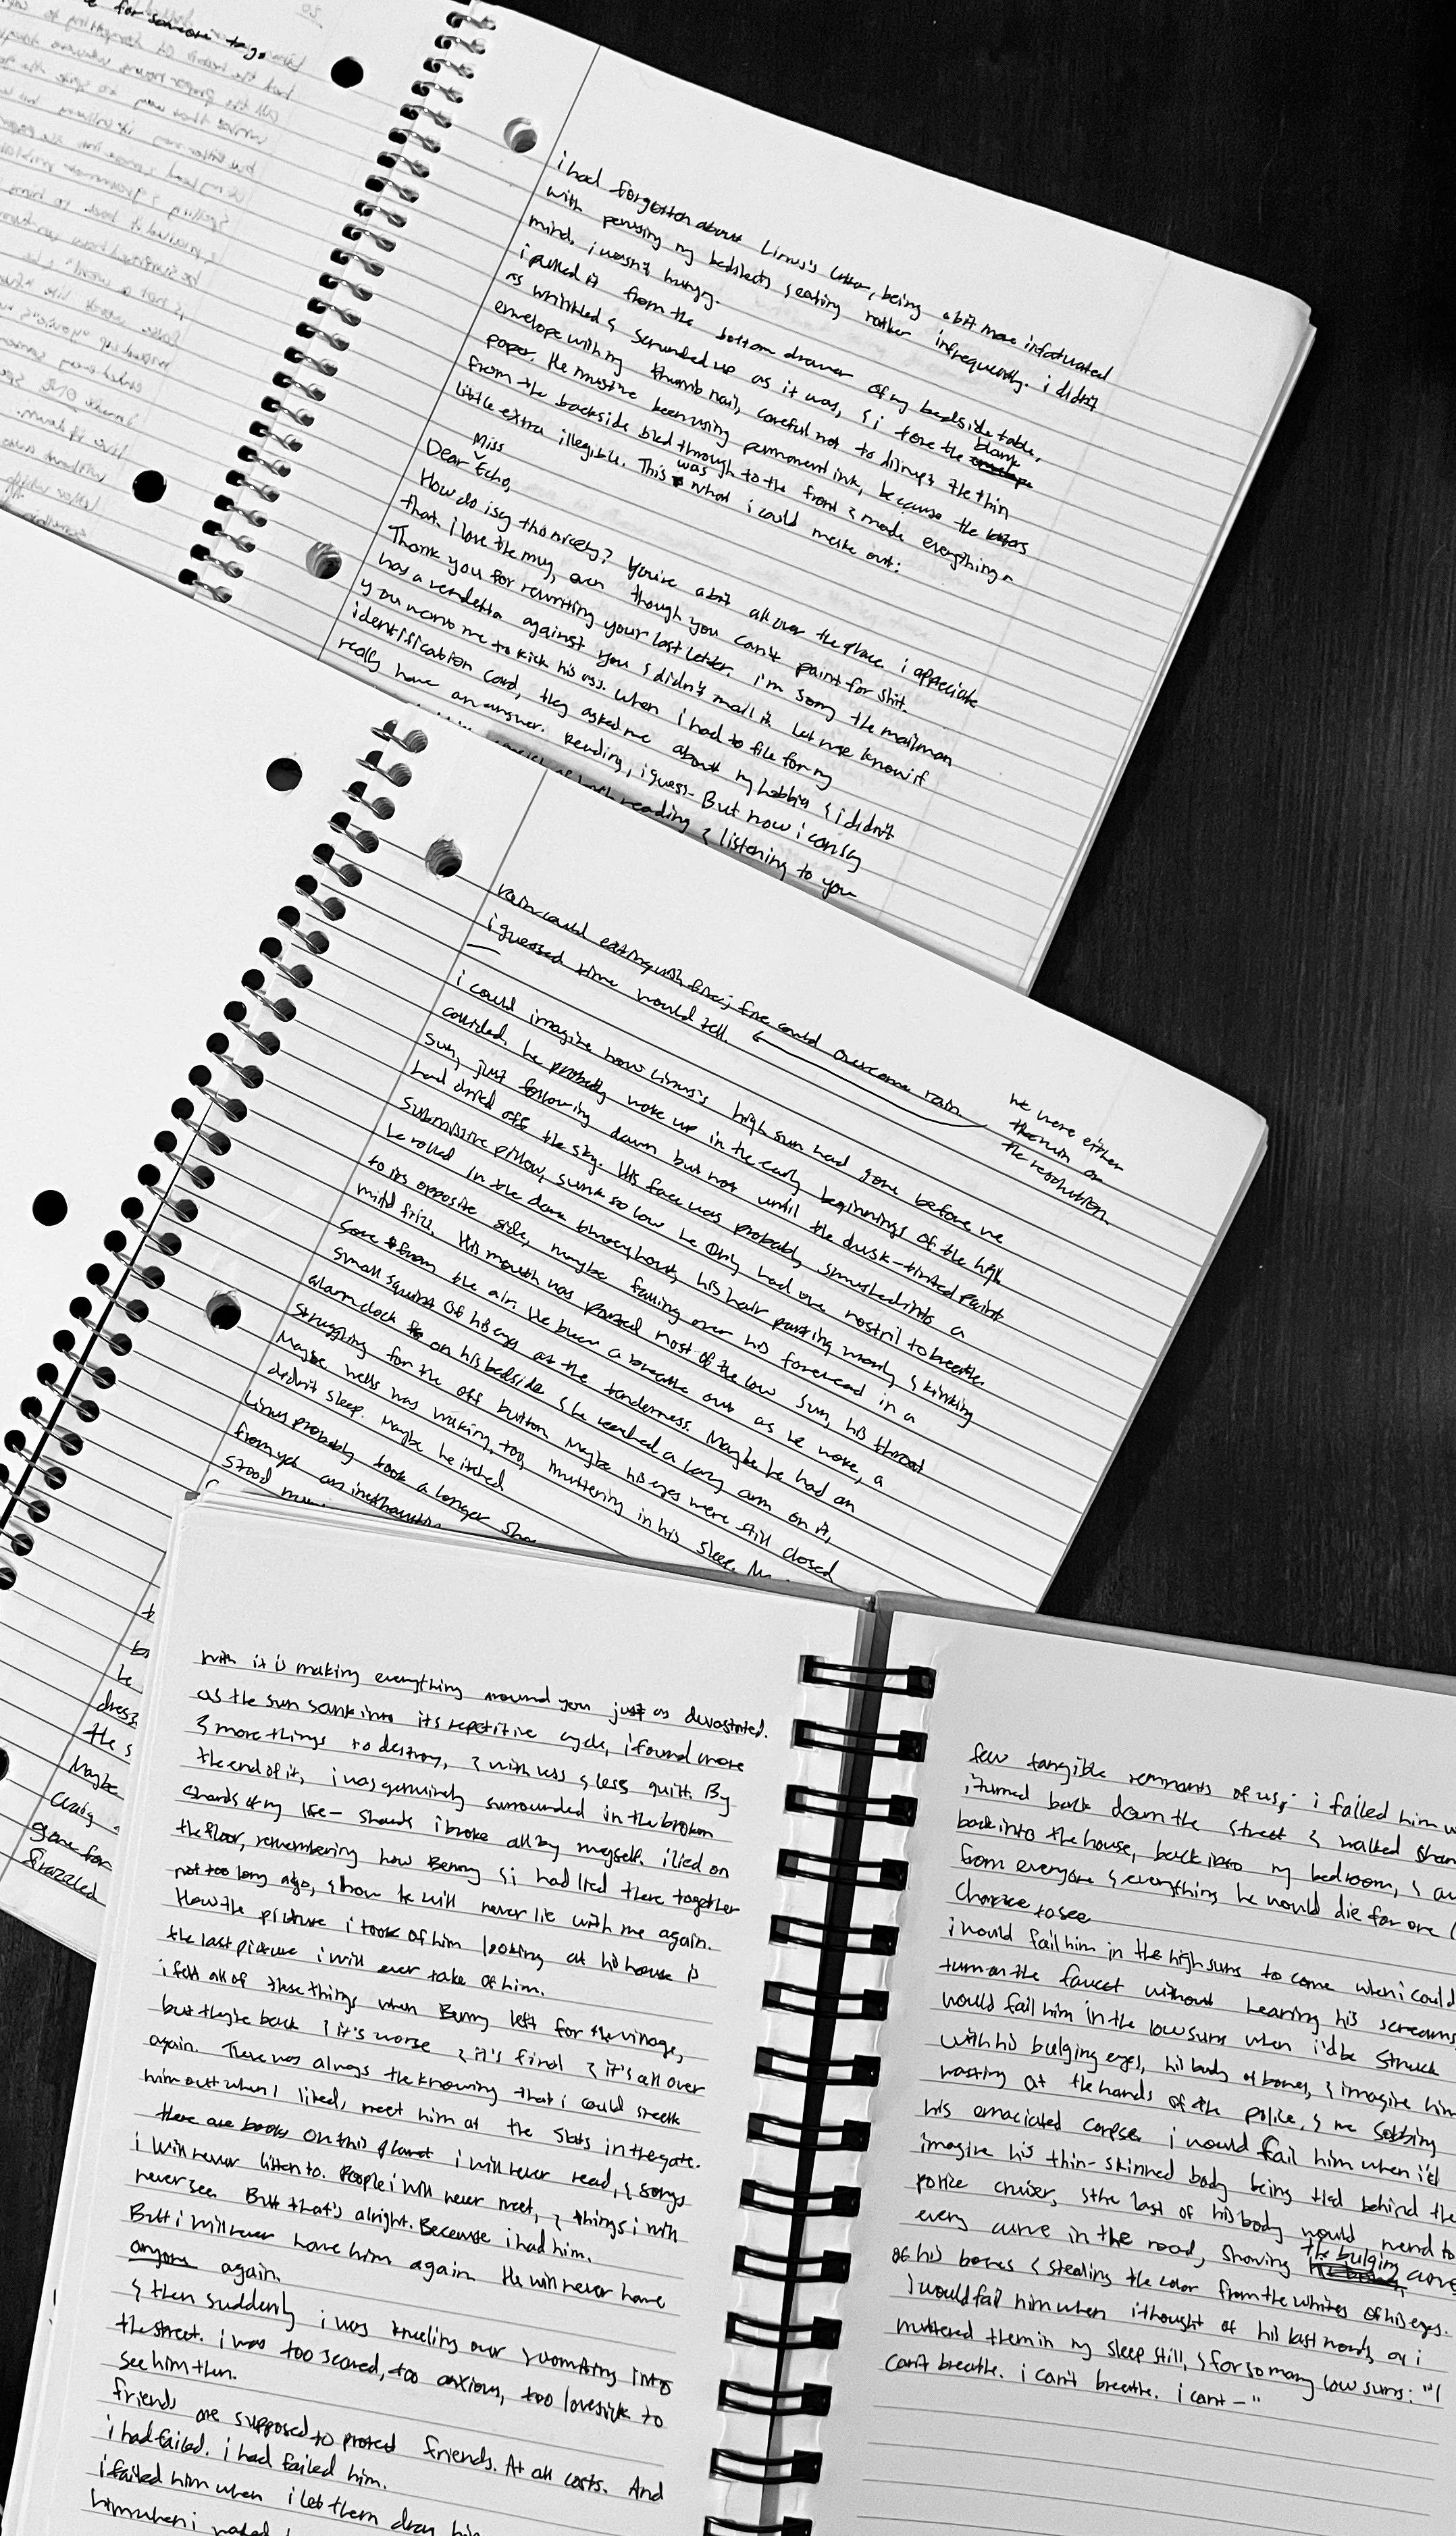 for someone
i had forgotten about Linus's letter, being a bit more infatuated
with perusing my bedsheets & eating rather infrequently. i didn't
mind. i wasn't hungry.
i pulled it from the bottom drawer of my bedside table,
as wrinkled & scrunded up as it was, & i tore the blank
envelope with my thumb nail, careful not to disrupt the thin
paper. He must've been using permanent ink, because the letters
from the backside bled through to the front & made everything a
little extra illegible. This was what i could make out:
Dear Miss Echo,
How do i say this nicely? You're a bit all over the place. i appreciate
that. i love the mug, even though you can't paint for shit.
Thank you for rewriting your last letter. i'm sorry the mailman
has a vendetta against you & didn't mail it. Let me know if
you want me to kick his ass. When i had to file for my
identification card, they asked me about my hobbies & i didn't
really have an answer. Reading, i guess. But now i can say
reading & listening to you
rain could extinguish fire; fire could overcome rain
i guessed time would tell.
we were either
the ruin or
the resolution.
i could imagine how Linus's high sun had gone before we
collided. he probably woke up in the early beginnings of the high
sun, just following dawn but not until the dusk-tinted paint
had dried off the sky. His face was probably smushed into a
submissive pillow, sunk so low he only had one nostril to breathe.
he rolled in the dark throughout, his hair parking mostly & kinking
to its opposite side, maybe falling over his forehead in a
mild frizz. His mouth was parted most of the low sun, his throat
sore from the air. He blew a breath out as he woke, a
small squint of his eyes at the tenderness. Maybe he had an
alarm clock on his bedside & he reached a lazy arm on it,
struggling for the off button. Maybe his eyes were still closed
Maybe Wells was waking, too, muttering in his sleep.
didn't sleep. Maybe he itched
Linus probably took a longer
from yet an
stood
he
dress
the s
Maybe
Craig
gone for
frazzled
with it is making everything around you just as devastated.
as the sun sank into its repetitive cycle, i found more
& more things to destroy, & with less & less guilt. By
the end of it, i was genuinely surrounded in the broken
shards of my life— shards i broke all by myself. i lied on
the floor, remembering how Benny & i had lied there together
not too long ago, & how he will never lie with me again.
How the picture i took of him looking at his house is
the last picture i will ever take of him.
i felt all of these things when Benny left for the village,
but they're back & it's worse & it's final & it's all over
again. There was always the knowing that i could sneak
him out when I liked, meet him at the slats in the gate.
there are books on this planet i will never read, & songs
i will never listen to. People i will never meet, & things i will
never see. But that's alright. Because i had him.
But i will never have him again. He will never have
anyone again.
& then suddenly i was kneeling over & vomiting into
the street. i was too scared, too anxious, too lovesick to
see him then.
friends are supposed to protect friends. At all costs. And
i had failed. i had failed him.
i failed him when i let them drag him
him when i
few tangible remnants of us; i failed him w
i turned back down the street & walked
back into the house, back into my bedroom, &
from everyone & everything he would die for one
chance to see
i would fail him in the high suns to come when i could
turn on the faucet without hearing his screams,
would fail him in the low suns when i'd be struck
with his bulging eyes, his body of bones, & imagine him
wasting at the hands of the police, & me sobbing
his emaciated corpse. i would fail him when i'd
imagine his thin-skinned body being tied behind the
police cruiser, & the last of his body would mend to
every curve in the road, shoving the bulging curve
of his bones & stealing the color from the whites of his eyes.
i would fail him when i thought of his last words, or i
muttered them in my sleep still, & for so many low suns: "I
can't breathe. i can't breathe. i cant—"